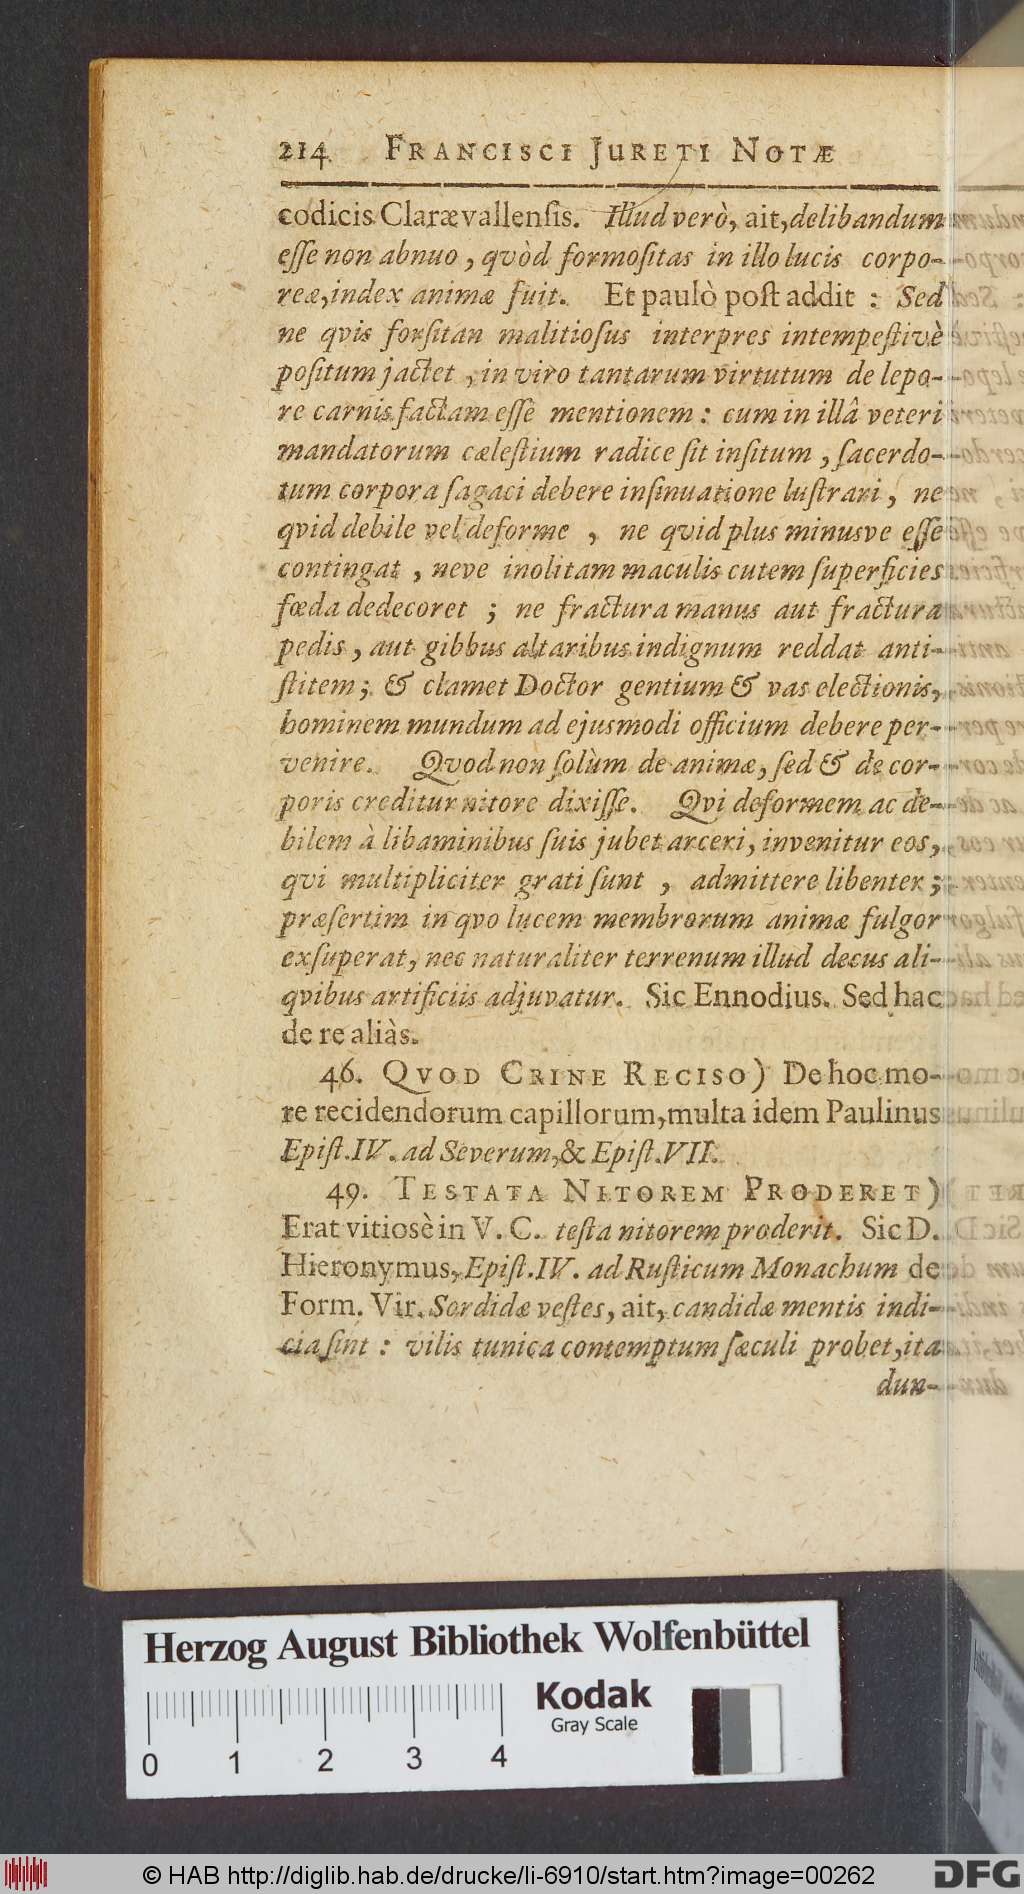 214. FRANCISCI JURETI NOTÆ
codicis Claræ vallensis. Illud verò, ait, delibandum
esse non abnuo, qvòd formositas in illo lucis corpo-
reæ, index animæ fuit. Et paulò post addit : Sed
ne qvis forsitan malitiosus interpres intempestivè
positum jactet, in viro tantarum virtutum de lepo-
re carnis factam esse mentionem : cum in illâ veteri
mandatorum cælestium radice sit insitum, sacerdo-
tum corpora sagaci debere insinuatione lustrari, ne
qvid debile vel deforme, ne qvid plus minusve esse
contingat, neve inolitam maculis cutem superficies
fœda dedecoret ; ne fractura manus aut fractura
pedis, aut gibbus altaribus indignum reddat anti-
stitem ; & clamet Doctor gentium & vas electionis,
hominem mundum ad ejusmodi officium debere per-
venire. Qvod non solùm de animæ, sed & de cor-
poris creditur nitore dixisse. Qvi deformem ac de-
bilem à libaminibus suis jubet arceri, invenitur eos,
qvi multipliciter grati sunt, admittere libenter ;
præsertim in qvo lucem membrorum animæ fulgor
exsuperat, nec naturaliter terrenum illud decus ali-
qvibus artificiis adjuvatur. Sic Ennodius. Sed hac
de re aliàs.
46. QVOD CRINE RECISO) De hoc mo-
re recidendorum capillorum, multa idem Paulinus
Epist. IV. ad Severum, & Epist. VII.
49. TESTATA NITOREM PRODERET)
Erat vitiosè in V. C. testa nitorem proderit. Sic D.
Hieronymus, Epist. IV. ad Rusticum Monachum de
Form. Vir. Sordidæ vestes, ait, candidæ mentis indi-
cia sint : vilis tunica contemptum sæculi probet, ita
dun-
Herzog August Bibliothek Wolfenbüttel
Kodak
Gray Scale
0 1 2 3 4
© HAB http://diglib.hab.de/drucke/li-6910/start.htm?image=00262
DFG